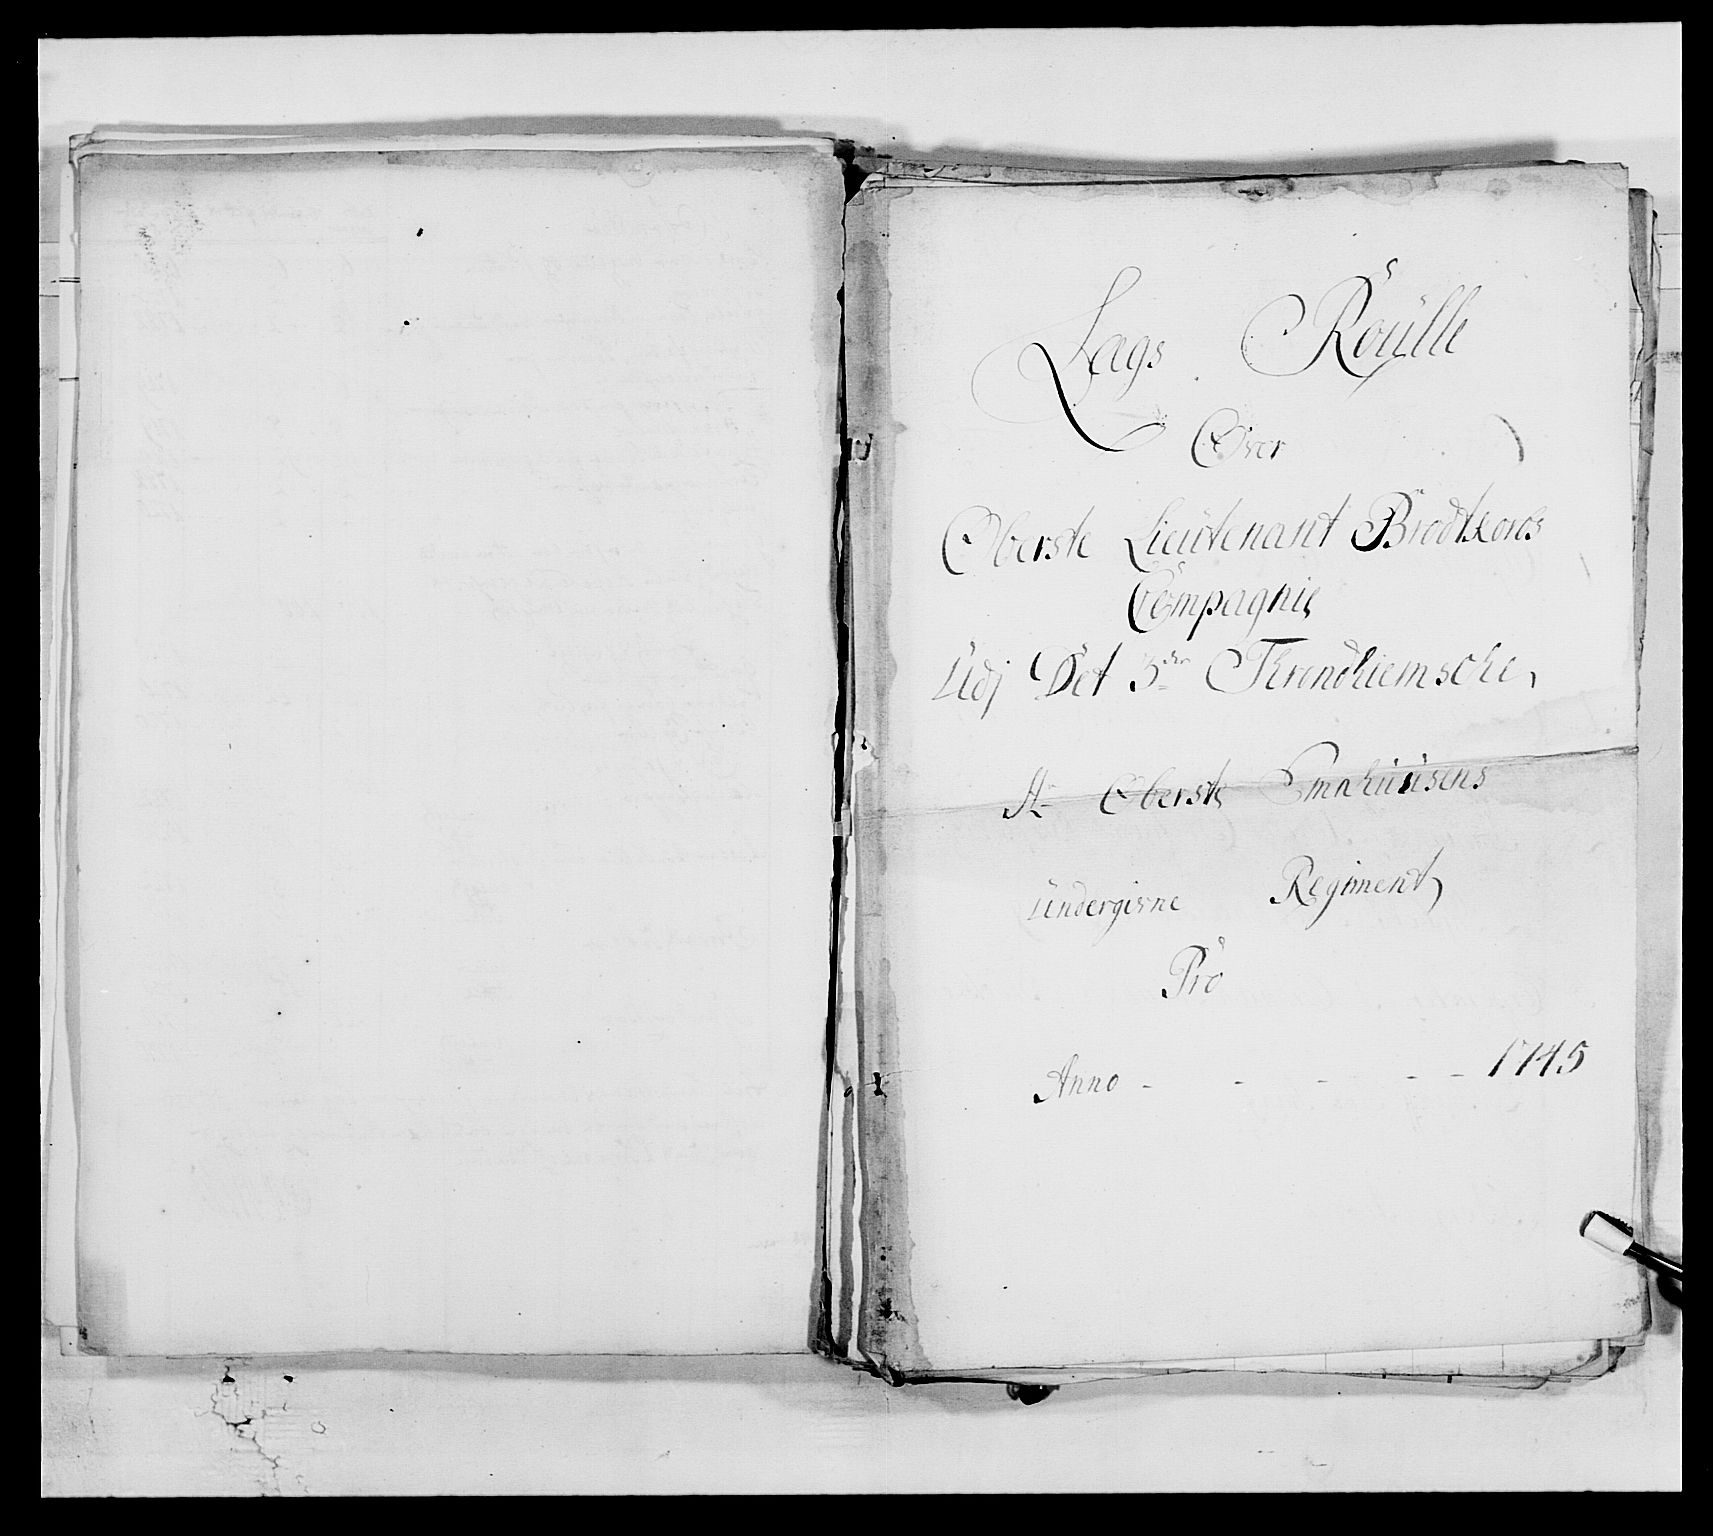 Lægs Roülle
Over
Oberste Lieütenant Brodtkorbs
Compagnie
Udj Det 3die Trondhiemsche,
Hr Oberste Emahuüsens
Undergivne Regiment,
Pro
Anno - - - - - 1745